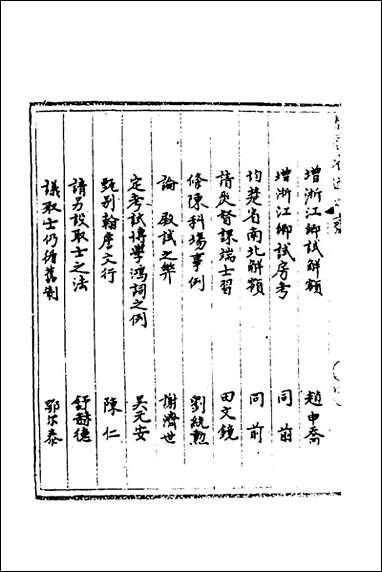 增浙江鄉試解額 趙申喬
增浙江鄉試房考 同前
均楚省南北解額 同前
請奬督課端士習 田文鏡
條陳科場事例 劉統勲
論殿試之弊 謝濟世
定考試博學鴻詞之例 吴元安
甄别翰詹文行 陳仁
請另設取士之法 舒赫德
議取士仍循舊制 鄂尔泰